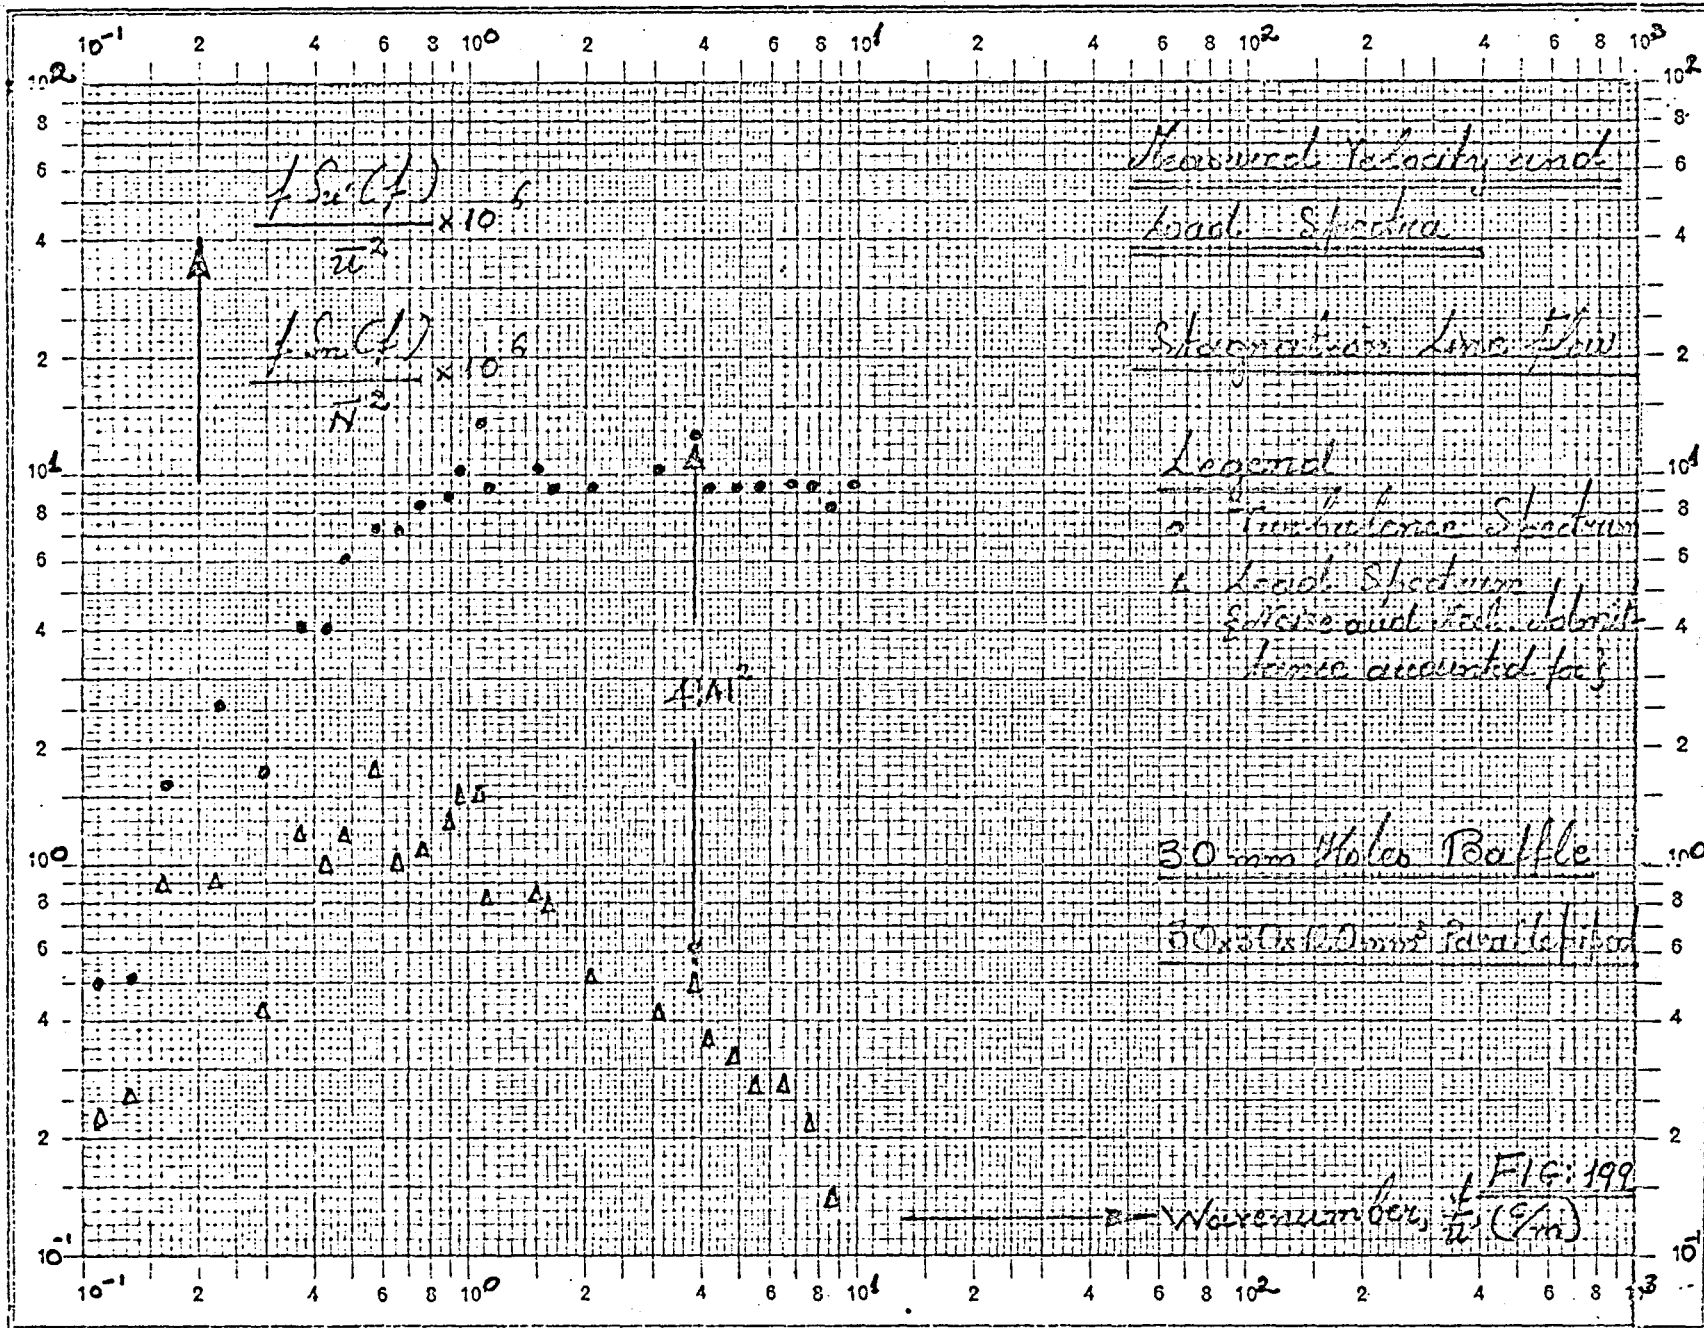 10-1 2 4 6 8 10⁰ 2 4 6 8 10¹ 2 4 6 8 10² 2 4 6 8 10³
10² 8 6 4 2 10¹ 8 6 4 2 10⁰ 8 6 4 2 10-1
f Su(f) × 10⁶
ū²
f Sn(f) × 10⁶
N̄²
4|A|²
Measured Velocity and
Load Spectra
Stagnation Line Flow
Legend
o Turbulence Spectrum
Δ Load Spectrum
{Noise and
accounted for}
30 mm Holes Baffle
30x30x120mm³ Parallelipod
FIG: 199
Wavenumber, f/ū, (c/m)
10² 8 6 4 2 10¹ 8 6 4 2 10⁰ 8 6 4 2 10-1
10-1 2 4 6 8 10⁰ 2 4 6 8 10¹ 2 4 6 8 10² 2 4 6 8 10³